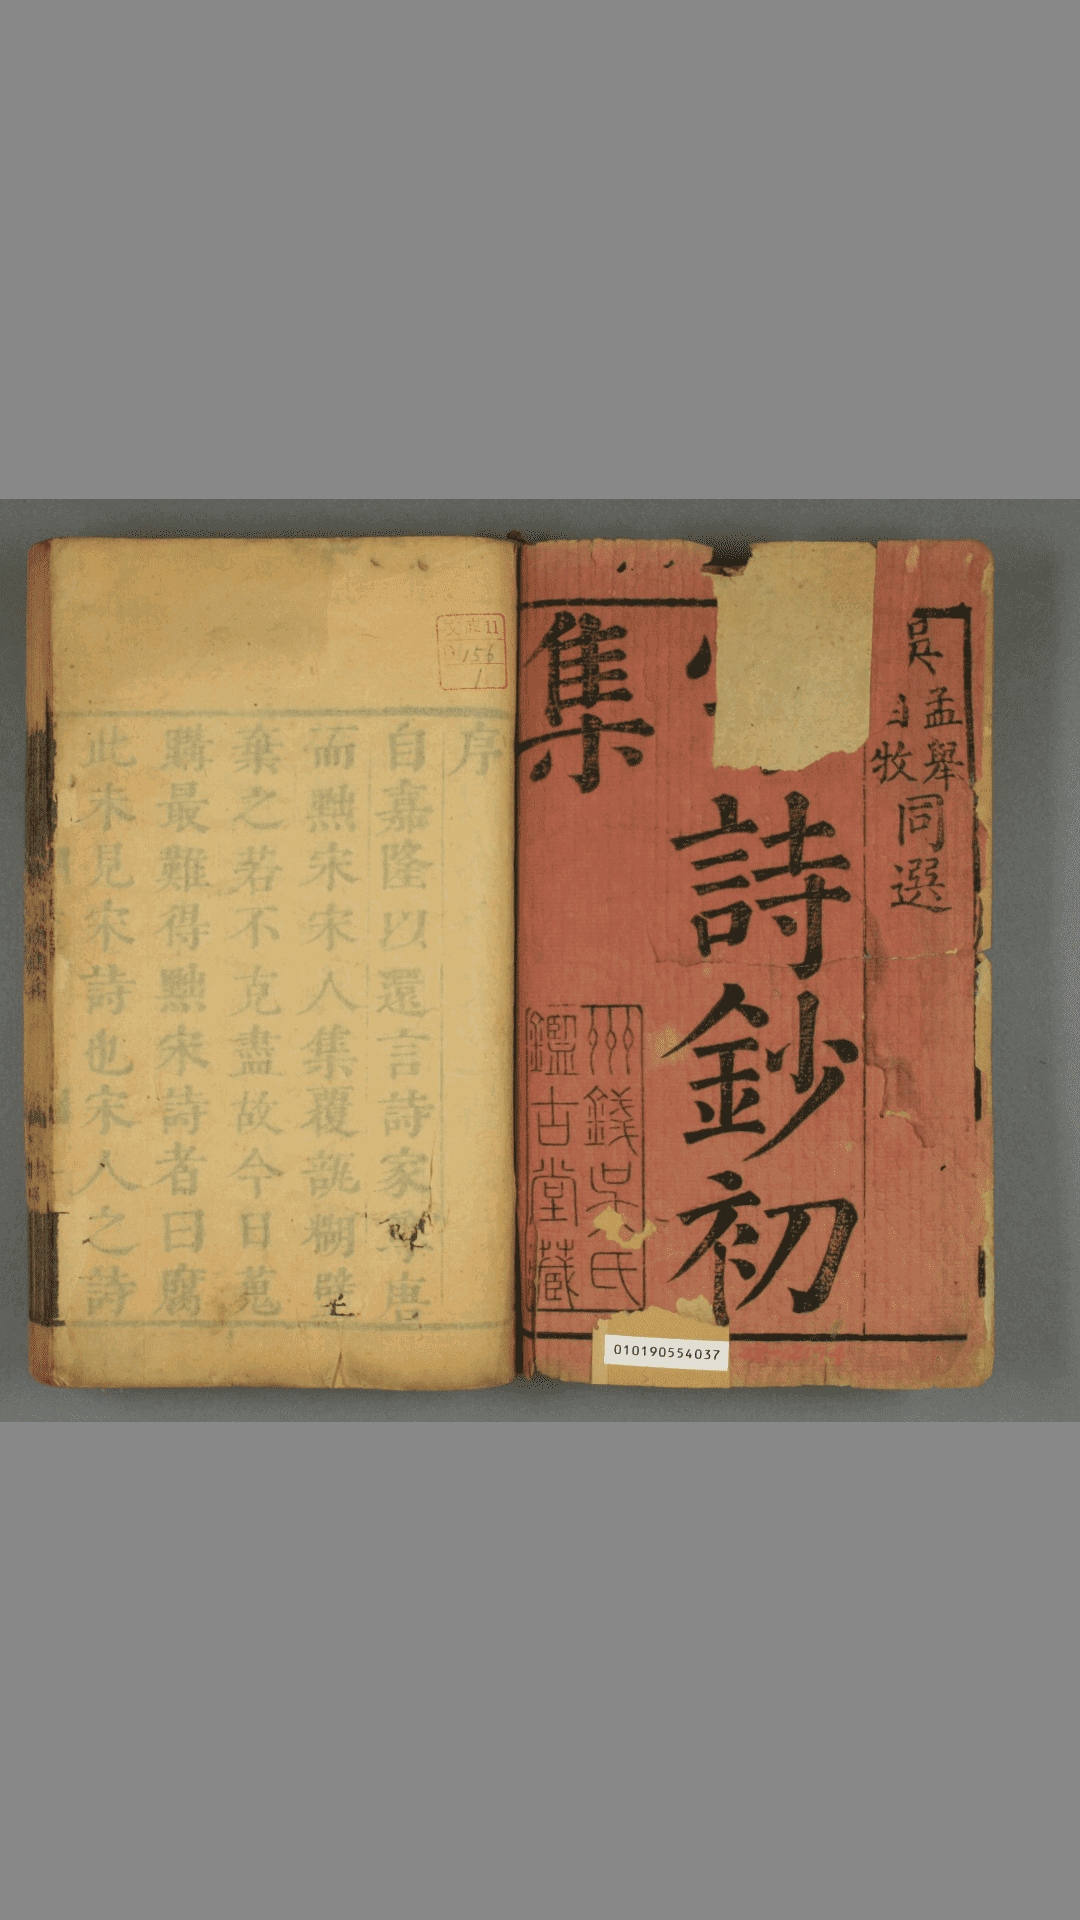 孟舉
自牧
同選
詩鈔初
集
州錢吳氏
鑑古堂藏
010190554037
序
自嘉隆以還言詩家尊唐
而黜宋宋人集覆瓿糊壁
棄之若不克盡故今日蒐
購最難得黜宋詩者曰腐
此未見宋詩也宋人之詩
11
156
1